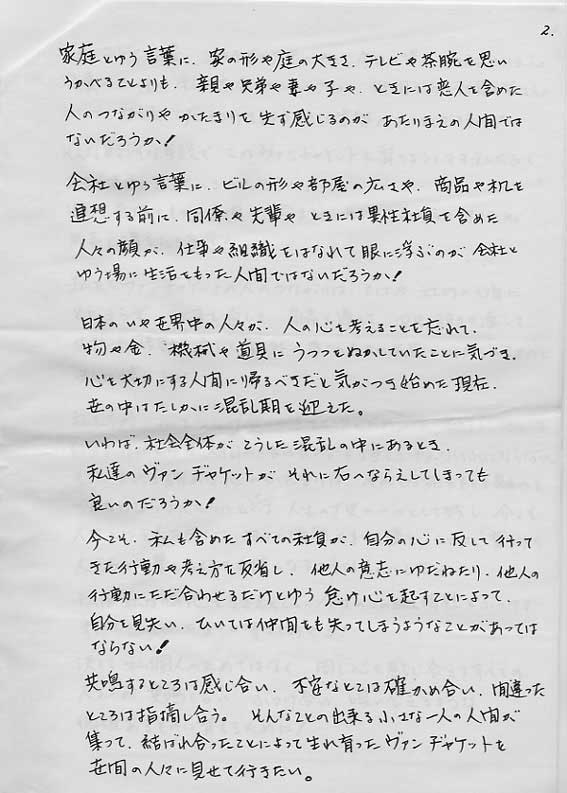 2.
家庭とゆう言葉に、家の形や庭の大きさ、テレビや茶腕を思い
うかべることよりも、親や兄弟や妻や子や、ときには恋人を含めた
人のつながりや かたまりを 先ず感じるのが あたりまえの人間では
ないだろうか!
会社とゆう言葉に、ビルの形や部屋の広さや、商品や机を
連想する前に、同僚や先輩や ときには異性社員を含めた
人々の顔が、仕事や組織をはなれて眼に浮ぶのが 会社と
ゆう場に生活をもった人間ではないだろうか!
日本の いや世界中の人々が、人の心を考えることを忘れて、
物や金、機械や道具に うつつをぬかしていたことに気づき、
心を大切にする人間に帰るべきだと気がつき始めた現在、
世の中はたしかに混乱期を迎えた。
いわば、社会全体が こうした混乱の中にあるとき、
私達のヴァンヂャケットが それに右へならえしてしまっても
良いのだろうか!
今こそ、私も含めたすべての社員が、自分の心に反して行って
きた行動や考え方を反省し、他人の意志にゆだねたり、他人の
行動にただ合わせるだけとゆう 怠け心を起すことによって、
自分を見失い、ひいては仲間をも失ってしまうようなことがあっては
ならない!
共鳴するところは感じ合い、不安なとこは確かめ合い、間違った
ところは指摘し合う。そんなことの出来る小さな一人の人間が
集って、結ばれ合ったことによって生れ育ったヴァンヂャケットを
世間の人々に見せて行きたい。